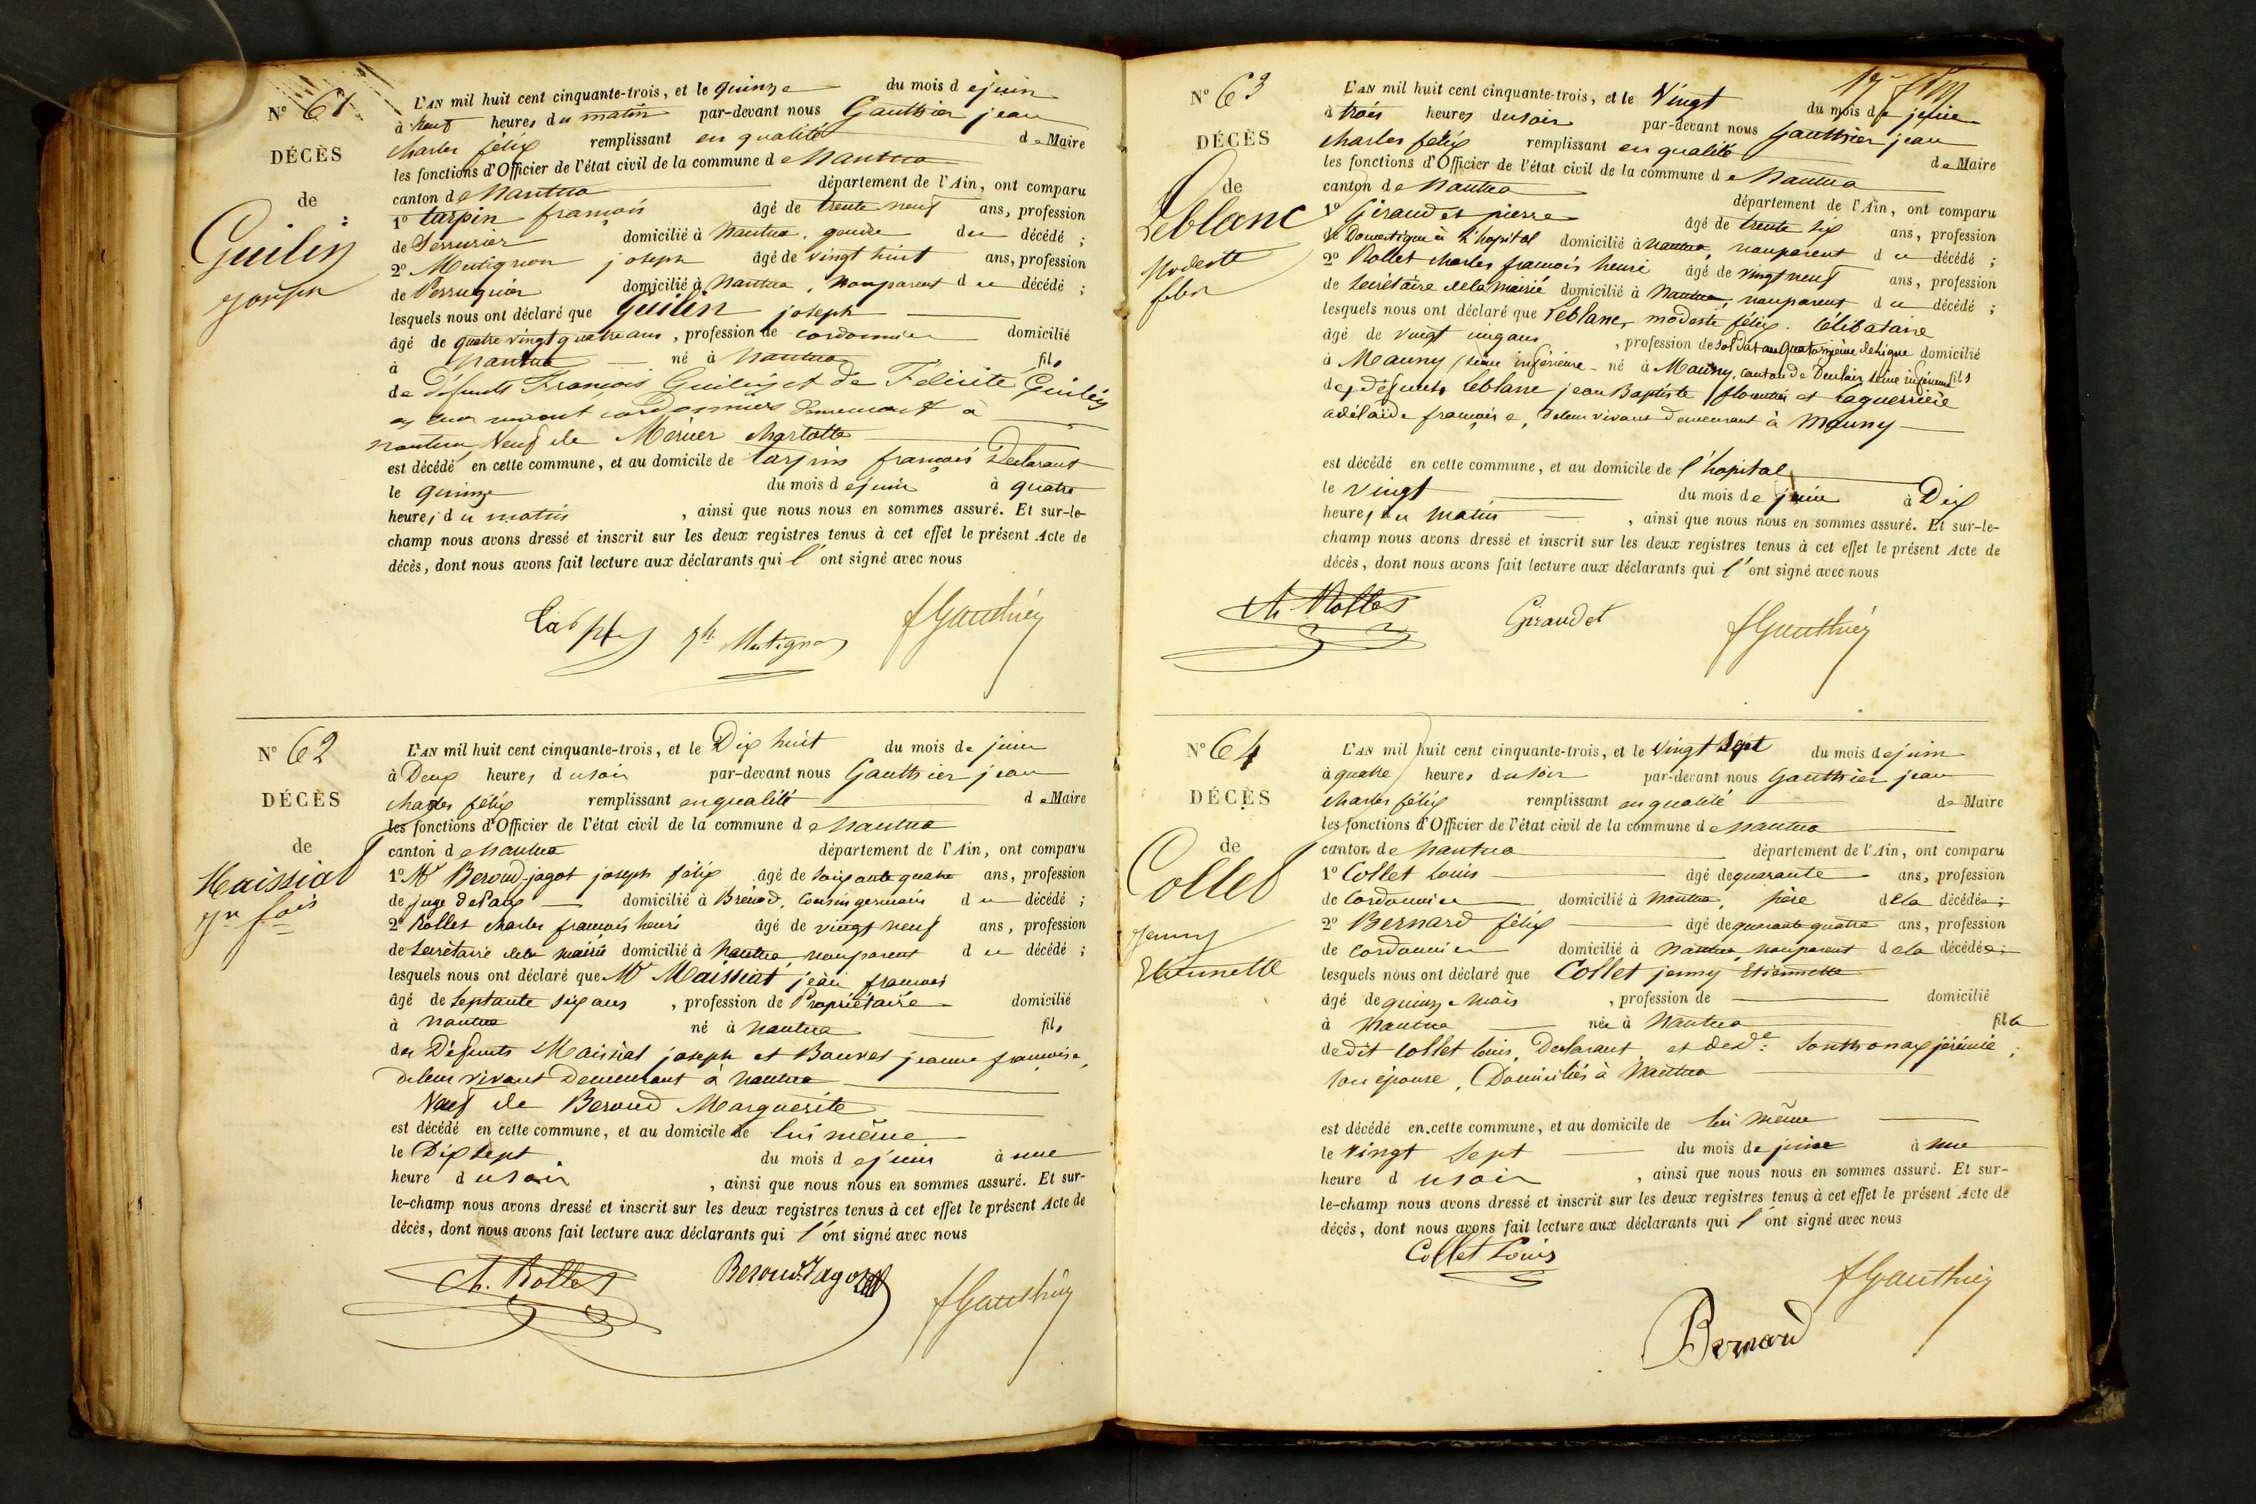 N° 61
DÉCÈS
de
Guilin
joseph
L'AN mil huit cent cinquante-trois, et le quinze du mois de juin
à neuf heures du matin par-devant nous Gauthier jean
charles félix remplissant en qualité de Maire
les fonctions d'Officier de l'état civil de la commune de Nantua
canton de Nantua département de l'Ain, ont comparu
1° tarpin françois âgé de trente neuf ans, profession
de Serrurier domicilié à Nantua, gendre du décédé ;
2° Mutignon joseph âgé de vingt huit ans, profession
de Perruquier domicilié à Nantua, nonparent du décédé ;
lesquels nous ont déclaré que Guilin joseph
âgé de quatre vingt quatre ans, profession de cordonnier domicilié
à Nantua né à Nantua fils
de défunts François Guilin et de Felicite Guilin
vivant cordonniers demeurant à
nantua, Veuf de Mercier charlotte
est décédé en cette commune, et au domicile de tarpin françois Declarant
le quinze du mois de juin à quatre
heures du matin, ainsi que nous nous en sommes assuré. Et sur-le-
champ nous avons dressé et inscrit sur les deux registres tenus à cet effet le présent Acte de
décès, dont nous avons fait lecture aux déclarants qui l'ont signé avec nous
jh Mutignon fGauthier
N° 62
DÉCÈS
de
Maissiat
jn fois
L'AN mil huit cent cinquante-trois, et le Dix huit du mois de juin
à Deux heures du soir par-devant nous Gauthier jean
charles félix remplissant en qualité de Maire
les fonctions d'Officier de l'état civil de la commune de Nantua
canton de Nantua département de l'Ain, ont comparu
1° Mr Beroud-jagot joseph félix âgé de soixante quatre ans, profession
de juge de Paix domicilié à Brénod, Cousin germain du décédé ;
2° Rollet charles françois henri âgé de vingt neuf ans, profession
de Secrétaire de la mairie domicilié à Nantua, nonparent du décédé ;
lesquels nous ont déclaré que Mr Maissiat jean françois
âgé de septante six ans, profession de Propriétaire domicilié
à nantua né à nantua fils
des Défunts Maissiat joseph et Bouvet jeanne françoise,
de leur vivant Demeurant à nantua
Veuf de Beroud Marguerite
est décédé en cette commune, et au domicile de lui même
le Dix sept du mois de juin à une
heure du soir, ainsi que nous nous en sommes assuré. Et sur-
le-champ nous avons dressé et inscrit sur les deux registres tenus à cet effet le présent Acte de
décès, dont nous avons fait lecture aux déclarants qui l'ont signé avec nous
Ch. Rollet Beroud Jagot fGauthier
N° 63
DÉCÈS
de
Leblanc
Modeste
félix
L'AN mil huit cent cinquante-trois, et le Vingt du mois de juin
à trois heures du soir par-devant nous Gauthier jean
charles félix remplissant en qualité de Maire
les fonctions d'Officier de l'état civil de la commune de Nantua
canton de Nantua département de l'Ain, ont comparu
1° Giraudet pierre âgé de trente six ans, profession
de Domestique à L'hopital domicilié à nantua, nonparent du décédé ;
2° Rollet charles françois henri âgé de vingt neuf ans, profession
de Secrétaire de la mairie domicilié à Nantua, nonparent du décédé ;
lesquels nous ont déclaré que Leblanc, modeste félix. Célibataire
âgé de vingt cinq ans, profession de soldat au Quatorzième de ligne domicilié
à Mauny (Seine inférieure né à Mauny, canton de Duclair Seine inférieure fils
des Défunts Leblanc jean Baptiste et Laguerrière
adélaïde françoise, de leur vivant demeurant à Mauny
est décédé en cette commune, et au domicile de l'hopital
le vingt du mois de juin à Dix
heures du matin, ainsi que nous nous en sommes assuré. Et sur-le-
champ nous avons dressé et inscrit sur les deux registres tenus à cet effet le présent Acte de
décès, dont nous avons fait lecture aux déclarants qui l'ont signé avec nous
Ch. Rollet Giraudet fGauthier
N° 64
DÉCÈS
de
Collet
Jenny
Etiennette
L'AN mil huit cent cinquante-trois, et le vingt sept du mois de juin
à quatre heures du soir par-devant nous Gauthier jean
charles félix remplissant en qualité de Maire
les fonctions d'Officier de l'état civil de la commune de nantua
canton de Nantua département de l'Ain, ont comparu
1° Collet Louis âgé de quarante ans, profession
de Cordonnier domicilié à Nantua, père de la décédée ;
2° Bernard félix âgé de quarante quatre ans, profession
de cordonnier domicilié à nantua, nonparent de la décédée ;
lesquels nous ont déclaré que Collet jenny Etiennette
âgé de quinze mois, profession de domicilié
à nantua née à Nantua fille
de dit Collet louis, Declarant, et de Sonthonax jérémie,
son épouse, Domiciliés à Nantua
est décédé en cette commune, et au domicile de lui même
le vingt sept du mois de juin à une
heure du soir, ainsi que nous nous en sommes assuré. Et sur-
le-champ nous avons dressé et inscrit sur les deux registres tenus à cet effet le présent Acte de
décès, dont nous avons fait lecture aux déclarants qui l'ont signé avec nous
Collet Louis fGauthier
Bernard